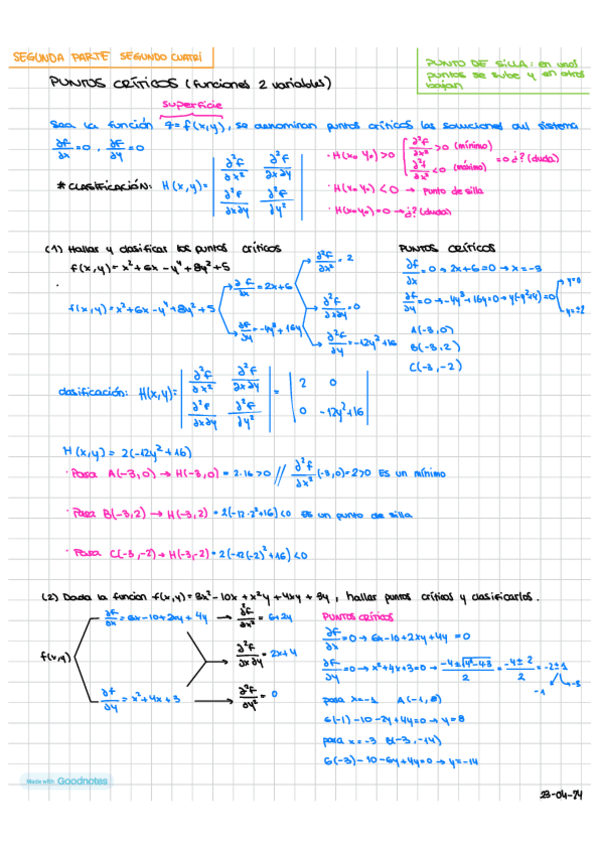 SEGUNDA PARTE SEGUNDO CUATRI
PUNTO DE SILLA: en unos
puntos se sube y en otros
bajan
PUNTOS CRÍTICOS (funciones 2 variables)
superficie
Sea la función z=f(x,y), se denominan puntos críticos las soluciones del sistema
∂f/∂x=0, ∂f/∂y=0
* CLASIFICACIÓN: H(x,y)= | ∂²f/∂x² ∂²f/∂x∂y |
| ∂²f/∂x∂y ∂²f/∂y² |
· H(x₀ y₀)>0 { ∂²f/∂x² >0 (mínimo)
∂²f/∂x² <0 (máximo)
=0 ¿? (duda)
· H(x₀ y₀) <0 → punto de silla
· H(x₀ y₀)=0 → ¿? (duda)
(1) Hallar y clasificar los puntos críticos
f(x,y)=x²+6x-y⁴+8y²+5
f(x,y)=x²+6x-y⁴+8y²+5
∂f/∂x=2x+6
∂f/∂y=-4y³+16y
∂²f/∂x²=2
∂²f/∂x∂y=0
∂²f/∂y=-12y²+16
PUNTOS CRÍTICOS
∂f/∂x=0→2x+6=0→x=-3
∂f/∂y=0→-4y³+16y=0→y(-y²+4)=0
y=0
y=±2
A(-3,0)
B(-3,2)
C(-3,-2)
clasificación: H(x,y)= | ∂²f/∂x² ∂²f/∂x∂y | = | 2 0 |
| ∂²f/∂x∂y ∂²f/∂y² | | 0 -12y²+16 |
H(x,y)=2(-12y²+16)
· Para A(-3,0)→H(-3,0)=2·16>0 // ∂²f/∂x²(-3,0)=2>0 Es un mínimo
· Para B(-3,2)→H(-3,2)=2(-12·2²+16)<0 es un punto de silla
· Para C(-3,-2)→H(-3,-2)=2(-12(-2)²+16)<0
(2) Dada la funcion f(x,y)=3x²-10x+x²y+4xy+3y, hallar puntos críticos y clasificarlos.
f(x,y)
∂f/∂x=6x-10+2xy+4y → ∂²f/∂x²=6+2y
∂²f/∂x∂y=2x+4
∂f/∂y=x²+4x+3 → ∂²f/∂y²=0
PUNTOS CRÍTICOS
∂f/∂x=0→6x-10+2xy+4y=0
∂f/∂y=0→x²+4x+3=0→(-4±√(4²-4·3))/2=(-4±2)/2=-2±1
-1
-3
para x=-1 A(-1,8)
6(-1)-10-2y+4y=0→y=8
para x=-3 B(-3,-14)
6(-3)-10-6y+4y=0→y=-14
Made with Goodnotes
23-04-24